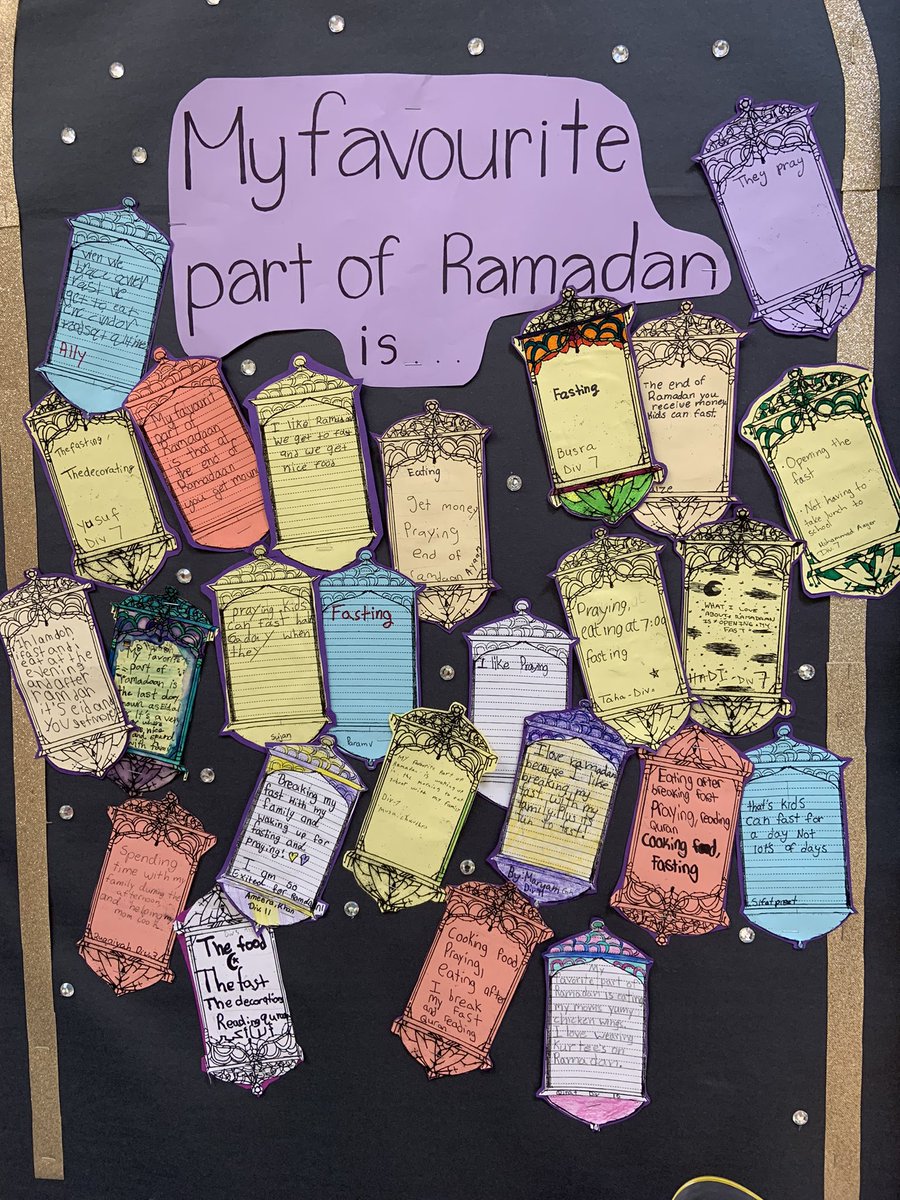 My favourite
part of Ramadan
is...
They pray
we
get to eat
Ally
Thefasting
Thedecorating
yusuf
Div 7
My favourit
part of
Ramadaan
is that at
the end of
Ramadaan
you get
I like
we get to
and we get
nice food
Eating
get money
Praying
end of
Fasting
Busra
Div 7
The end of
Ramadan you
receive money
Kids can fast
Opening the
fast
Not having to
take lunch to
school
Mohammad
Div 7
fast and
eat at the
evening
and after
it's eid and
favorite
part of
Ramadaan is
the last day
it's a
nice
with
praying Kids
can fast
when
they
Sujan
Fasting
Param V
I like Praying
Praying,
eating at 7:00
fasting
Taha-Div
WHAT I LOVE
ABOUT RAMADAAN
IS OPENING MY
FAST
HADI-DIV 7
Breaking my
fast with my
family and
waking up for
fasting and
praying!
I am so
Exited for
Ameera, Khan
Div. 11
part of
is waking up
in the morning
school with my
Div.7
I love Ramadan
because I like
breaking my
fast with my
family
fun to fast!
By: Maryam
Div 11
Eating after
breaking fast
Praying, reading
Quran
Cooking food,
Fasting
that's kids
can fast for
a day Not
lots of days
Sifatpreet
Spending
time with my
family during the
afternoon
and helping my
mom cook
The food
The fast
The decoration
Reading
Cooking food,
Praying,
eating after
I break
my fast
and reading
Quran
My
favorite part of
Ramadan is eating
my moms yumy
chicken wings,
I love wearing
on
Ramadan.